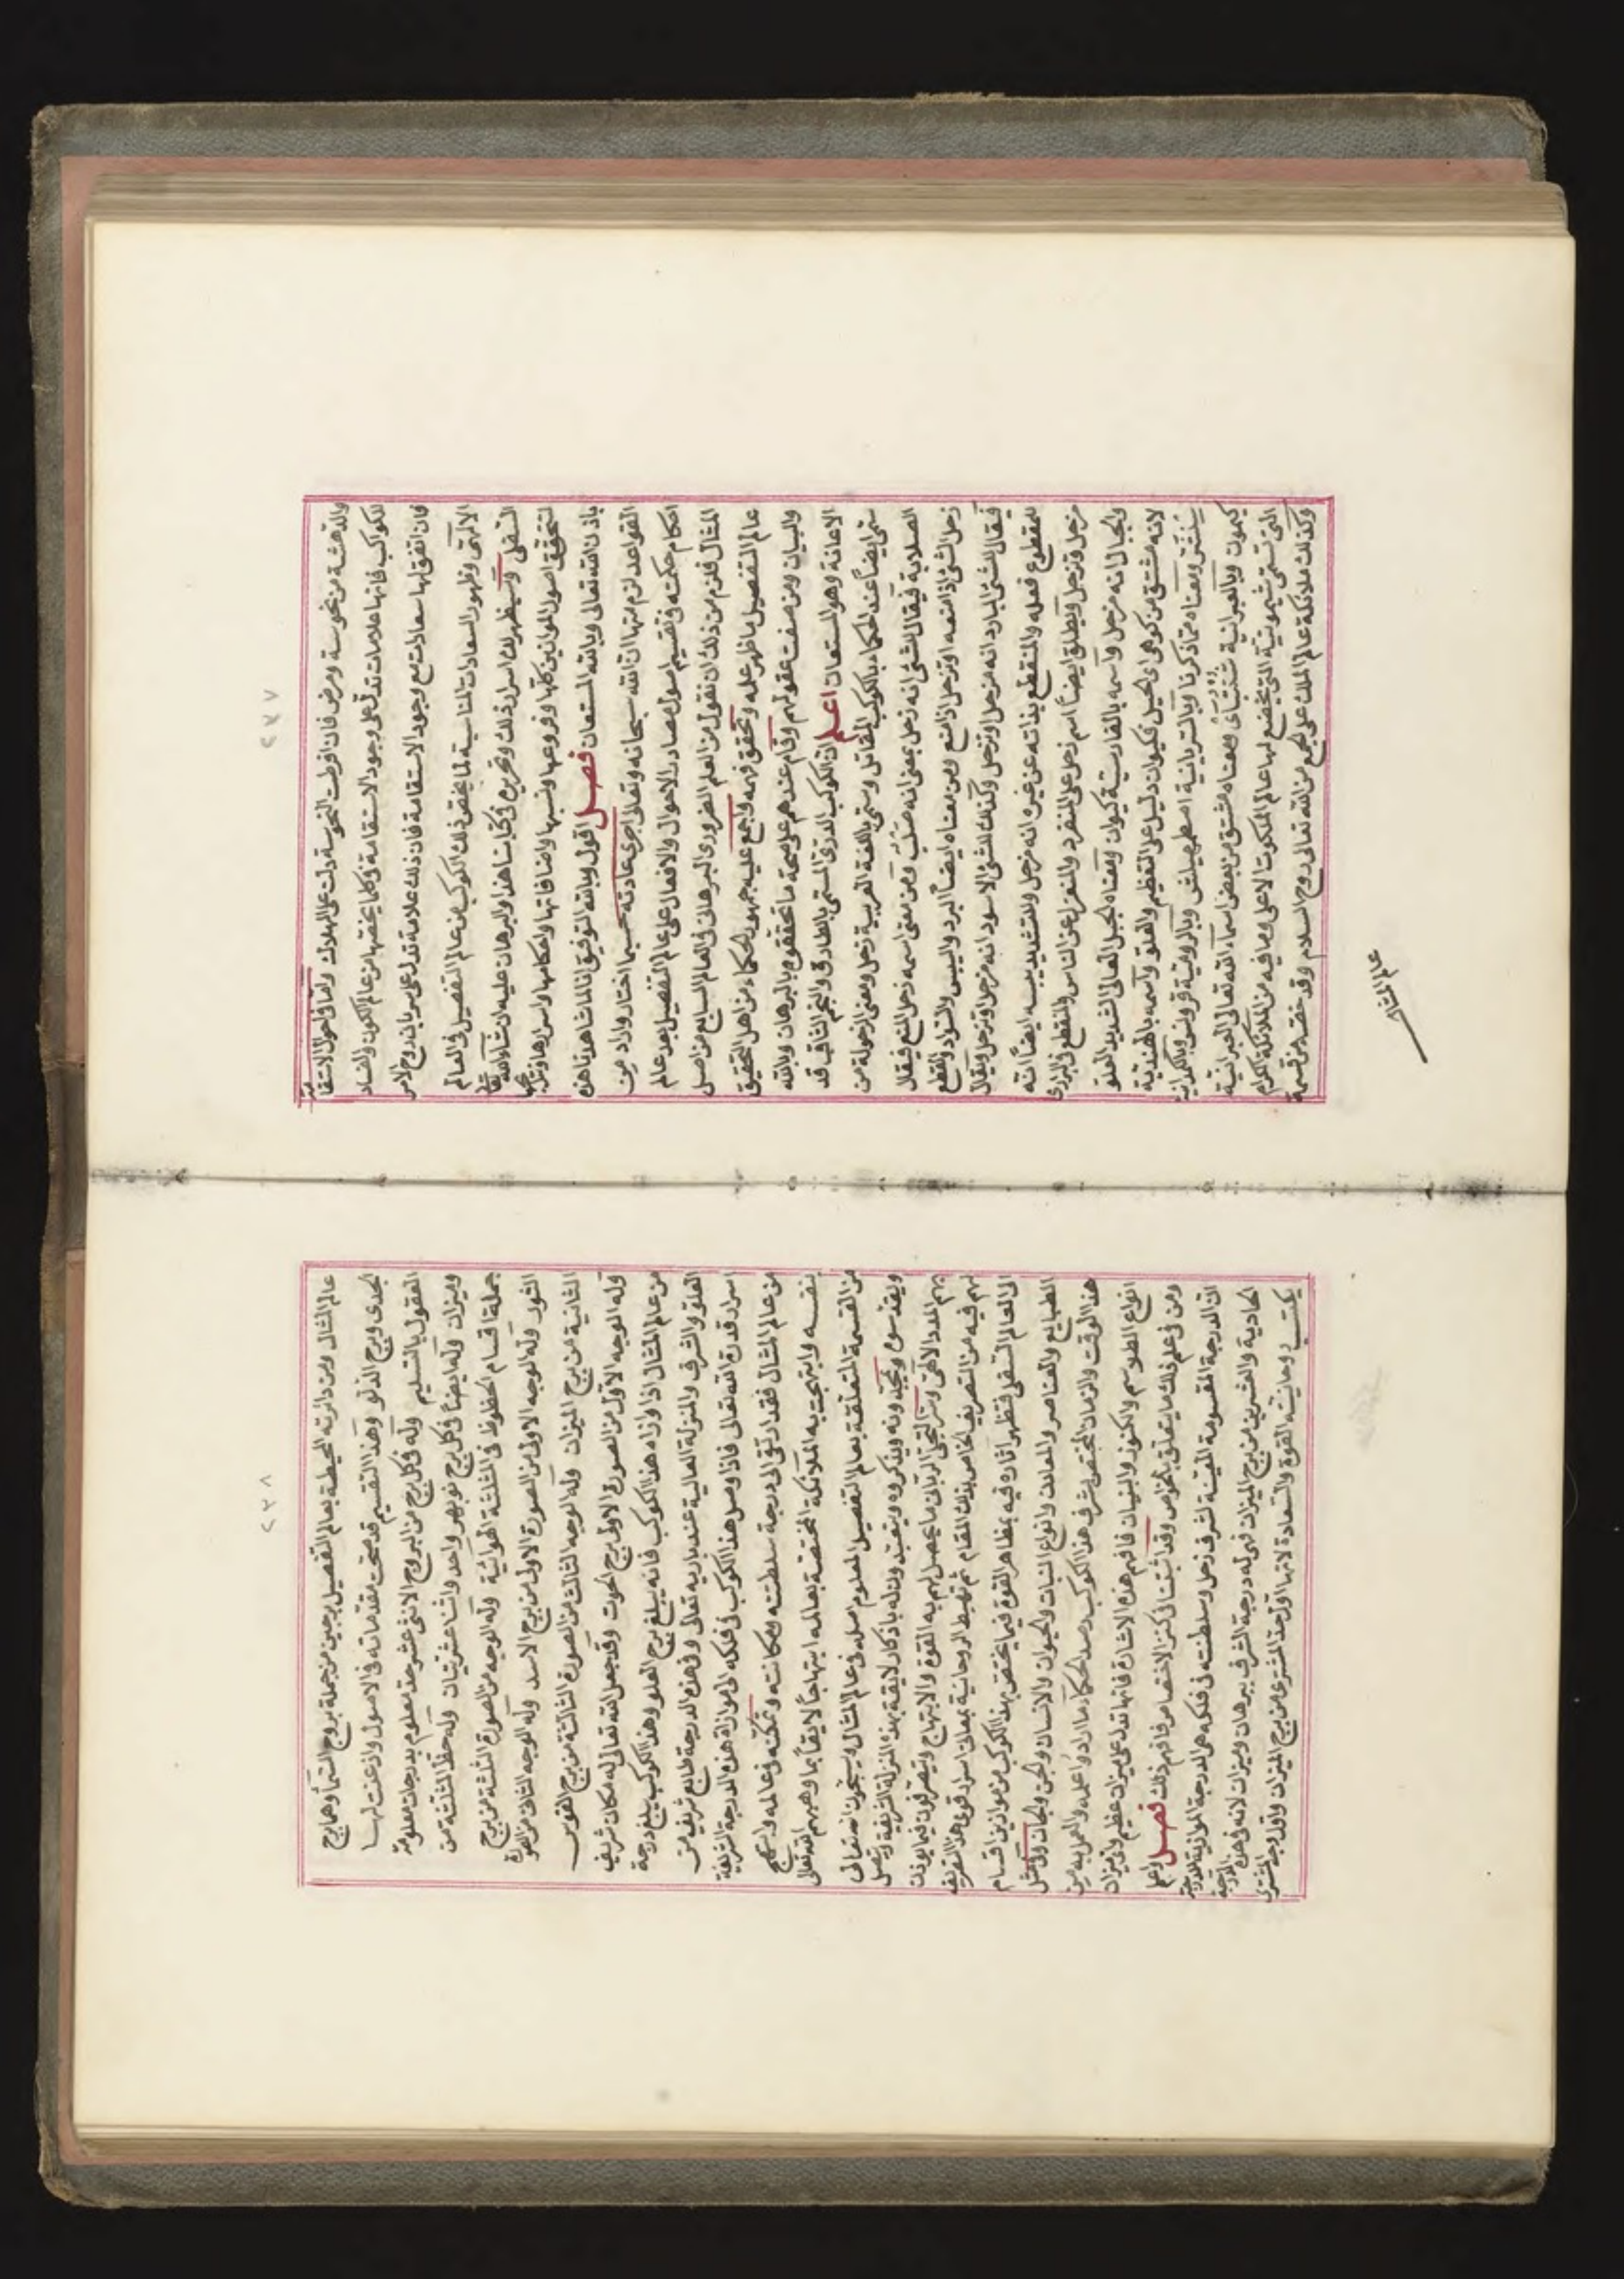 ٢٣٧
والدهشة من نحوسة ومرض فان افرطت النحوسة دلت على الهلاك واما فى احوال الاستقامة
للكواكب فانها علامات تدل على وجود الاستقامة وكلما يختص بها من عالم الكون والفساد
فان اتفق لها سعادات مع وجود الاستقامة فان ذلك علامة تدل على سريان روح الامر
الالهى وظهور السعادات المناسبة لما يختص ذلك الكوكب من عالم التفصيل فى العالم
السفلى وسيظهر لك اسرار ذلك وتحريره فى كتابنا هذا والبرهان عليه ان شاء الله تعالى
لتحقق اصول الموازين كلها وفروعها ونسبها واضافاتها واحكامها واسرارها
باذن الله تعالى وبالله المستعان فصل اقول وبالله التوفيق انا لما شاهدنا هذه
القواعد لزم منها ان الله سبحانه وتعالى اجرى عادته حسبما اختار واراد من
احكام حكمته فى تقسيم اصول مصادر الاحوال والافعال على عالم التفصيل بعد عالم
المثال فلزم من ذلك ان نقول من العلم الضرورى البرهانى فى العالم السابع من اصل
عالم التفصيل ما ظهر علمه وتحقق فهمه واجمع عليه جمهور الحكماء من اهل التحقيق
والبيان ومن صفت عقولهم وقام عندهم على صحة ما تحققوه بالبرهان وبالله
الاعانة وهو المستعان اعلم ان الكوكب الدرى المسمى بالطارق والنجم الثاقب قد
سمى ايضاً عند الحكماء بالكوكب المقاتل وسمى باللغة العربية زحل ومعنى الزحولة من
الصلابة فيقال للشئ انه زحل بمعنى انه صلب ومن معنى اسمه زحل المنع فيقال
زحل الشئ اذا منعه او تزحل اذا امتنع ومن معناه ايضاً البرد واليبس والسواد والقطع
فيقال للشئ البارد انه مزحل او تزحل وكذلك للشئ الاسود انه مزحل او تزحل ويقال
للمقطوع فعله والمنقطع بذاته عن غيره انه مزحل وللشديد يبسه ايضاً انه
مزحل وتزحل ويطلق ايضاً اسم زحل على المنفرد والمنعزل عن الناس والمنقطع فى البرارى
والجبال انه مزحل واسمه بالفارسية كيوان ومعناه الجبل العالى الشديد العلو
لانه مشتق من كوهى اى الجبل فكيوان دليل على التعظيم والعلو واسمه بالهندية
ومعناه مما ذكرنا وبالسريانية وبالرومية قرونس وبالكلدانية
كيموت وبالعبرانية ومعناه مشتق من بعض اسماء الله تعالى العبرانية
التى تسمى التى تخضع لها عالم الملكوت الاعلى وما فيه من الملائكة الكرام
وكذلك ملائكة عالم الملك على الجمع من الله تعالى روح السلام وقد خصه من قسمة
عالم المثال
٢٣٨
عالم المثال ومن دائرته المحيطة بعالم التفصيل برجين من جملة بروج السماء وهما برج
الجدى وبرج الدلو وهذا التقسيم قد صحت مقدماته فى الاصول واذعنت لها
العقول بالتسليم وله فى كل برج من البروج الاثنى عشر حد معلوم بدرجات معلومة
وميزان وله ايضاً فى كل برج نوبهر واحد واثنا عشريتان وله حظ المثلثة من
جملة اقسام الحظوظ فى المثلثة الهوائية وله الوجه من الصورة الثلثة من برج
الثور وله الوجه الاول من الصورة الاولى من برج الاسد وله الوجه الثانى من الصورة
الثانية من برج الميزان وله الوجه الثالث من الصورة الثالثة من برج القوس
وله الوجه الاول من الصورة الاولى برج الحوت وقد جعل الله تعالى له مكان شريف
من عالم المثال اذا وازاه هذا الكوكب فانه يبلغ برج العلو وهذا الكوكب يبلغ درجة
العلو والشرف والمنزلة العالية عند باريه تعالى وفى هذه الدرجة طابع شريف من
اسرار قدرة الله تعالى فاذا وصل هذا الكوكب فى فلكه الى موازاة هذه الدرجة الشريفة
من عالم المثال فقد ارتقى الى درجة سلطنته ومكانته وتمكنه فى عالمه وابتهج
بنفسه وابتهجت به الملائكة المختصة بعالمه ابتهاجاً لايقاً بما وهبهم الله تعالى
من القسمة المتعلقة بعالم التفصيل المعلوم اصله فى عالم المثال ويسبحون الله تعالى
ويقدسوه ويمجدونه ويذكروه ويتعبدون له باذكار لايقة بهذه المنزلة الشريفة ويتصل
بهم المدد الالهى وسر التجلى الربانى ما يحصل لهم به القوة والابتهاج ويتصرفون فيما يؤذن
لهم فيه من التصريف الخاص بذلك المقام ثم تهبط الروحانية بمعانى اسرار قوى هذا التصريف
الى العالم السفلى فتظهر اثاره فيه بمظاهر القوة فيما يختص بهذا الكوكب من موازين اقسام
الطبايع والعناصر والمعادن وانواع النبات والحيوان والانسان والجن والجان وفى مثل
هذا الوقت والزمان المختص بشرف هذا الكوكب رصد الحكماء ما ارادوا عمله والعمل به من
انواع الطلوسم والكنوز والبنيان فافهم هذه الاشارة فانها تدل على ميزان عظيم واى ميزان
ومن فى علم ذلك ما يتعلق بالخواص وقد اثبتنا فى كنز الاختصاص فافهم ذلك فصل واعلم
ان الدرجة المقسومة المعينة لشرف زحل وسلطنته فى فلكه هى الدرجة الموازية للدرجة
الحادية والعشرين من برج الميزان فهى له درجة الشرف ببرهان وميزان لانه فى هذه الدرجة
يكتسب روحانيته القوة والسعادة لانها اول حد المشترى من برج الميزان واول وجه المشترى